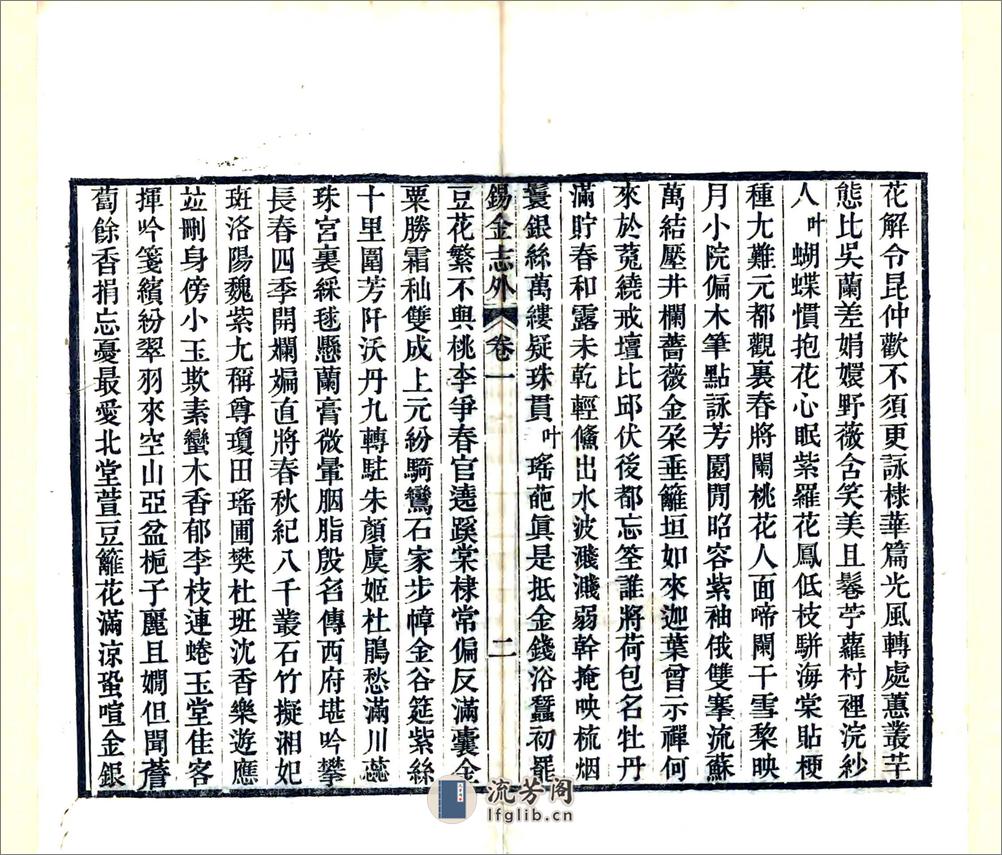 花解令昆仲歡不須更詠棣華篇光風轉處蕙叢芊
態比吳蘭差娟嬛野薇含笑美且鬈苧蘿村裡浣紗
人叶蝴蝶慣抱花心眠紫羅花鳳低枝駢海棠貼梗
種尢難元都觀裏春將闌桃花人面啼闌干雪黎映
月小院偏木筆點詠芳園閒昭容紫袖俄雙搴流蘇
萬結壓井欄薔薇金朶垂籬垣如來迦葉曾示禪何
來於菟繞戒壇比邱伏後都忘筌誰將荷包名牡丹
滿貯春和露未乾輕鯈出水波濺濺弱幹掩映梳烟
鬟銀絲萬縷疑珠貫叶瑤葩眞是抵金錢浴蠶初罷
錫金志外 卷一 二
豆花繁不與桃李爭春官遶蹊棠棣常偏反滿囊金
粟勝霜秈雙成上元紛騎鸞石家步幛金谷筵紫絲
十里圍芳阡沃丹九轉駐朱顏虞姬杜鵑愁滿川蕊
珠宮裏綵毬懸蘭膏微暈胭脂殷名傳西府堪吟攀
長春四季開斕斒直將春秋紀八千叢石竹擬湘妃
斑洛陽魏紫尢稱尊瓊田瑤圃樊杜班沈香樂遊應
竝刪身傍小玉欺素蠻木香郁李枝連蜷玉堂佳客
揮吟箋繽紛翠羽來空山亞盆梔子麗且嫺但聞薝
蔔餘香捐忘憂最愛北堂萱豆籬花滿涼蛩喧金銀
流芳阁
lfglib.cn